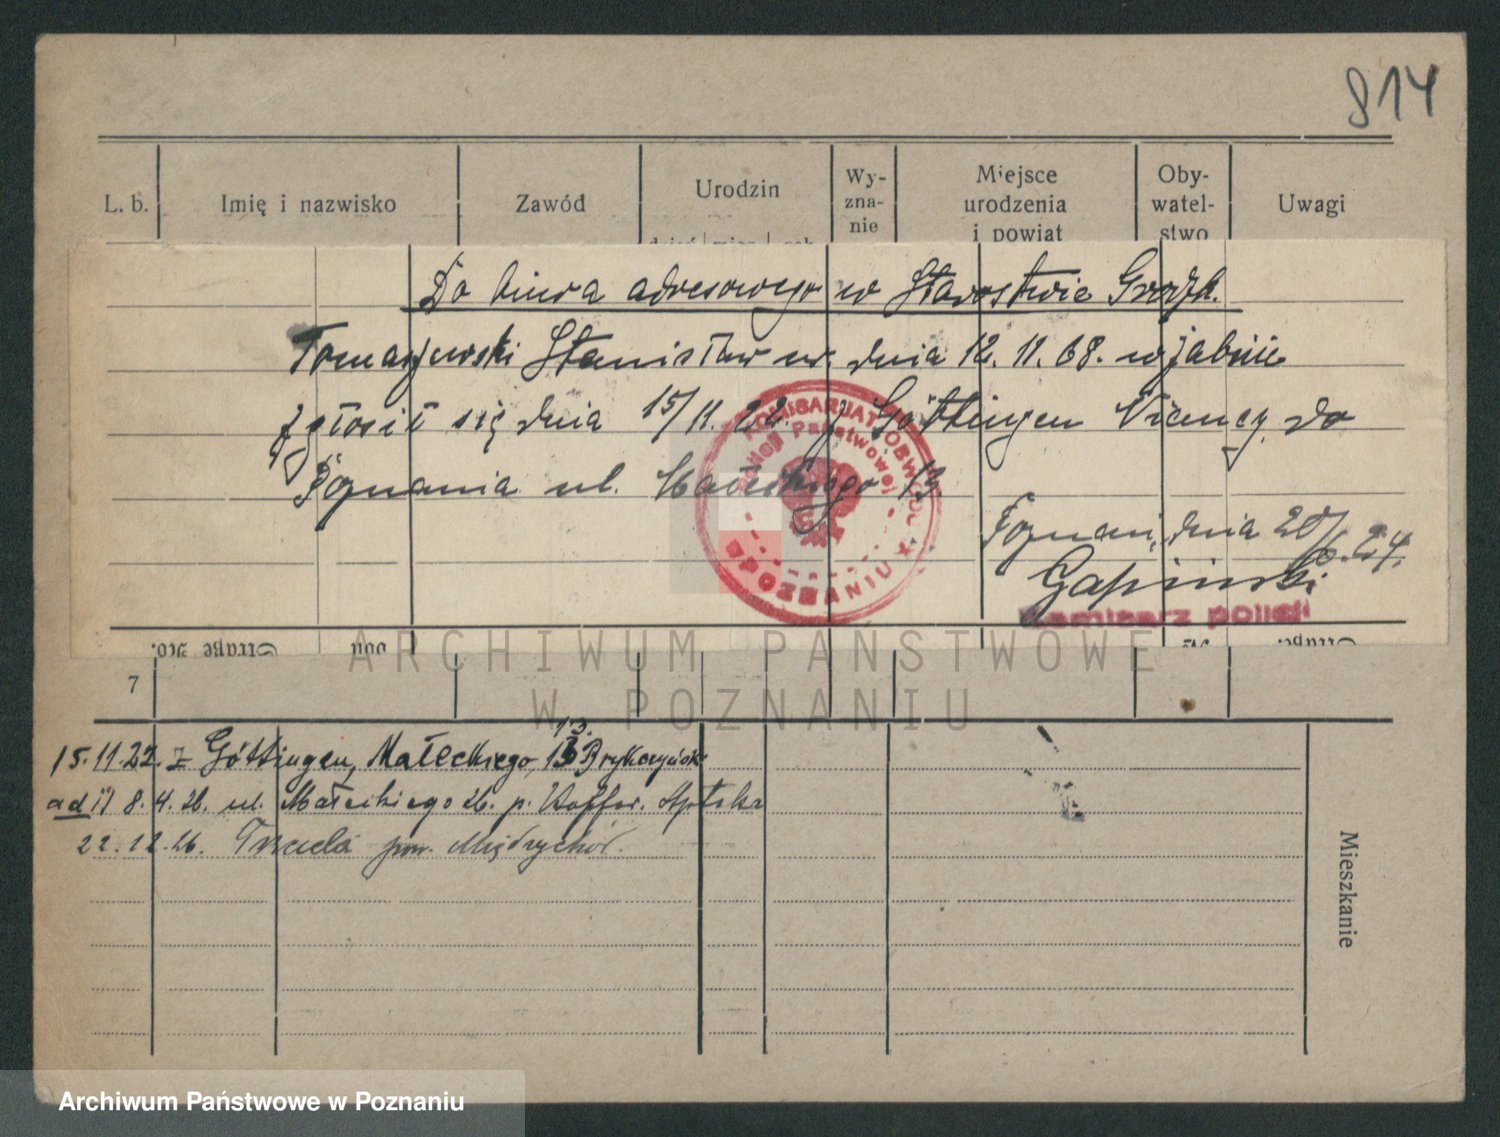 814
L. b. Imię i nazwisko Zawód Urodzin Wy-zna-nie Miejsce urodzenia i powiat Oby-watel-stwo Uwagi
Do biura adresowego w Starostwie Grodzk.
Tomaszewski Stanisław ur. dnia 12.11.68. w Żabnie
zgłosił się dnia 15/11.22. z Göttingen Niemcy do
Poznania ul. Małeckiego 13.
Poznań, dnia 20/6.24.
KOMISARJAT OBWODU X
Policji Państwowej
W POZNANIU
Komisarz policji
ARCHIWUM PAŃSTWOWE
W POZNANIU
7
15.11.22. z Göttingen, Małeckiego, 13
ad 11 8.4.26. ul. Małeckiego 26. p. Apteka
22.12.26. pow. Międzychód.
Mieszkanie
Archiwum Państwowe w Poznaniu